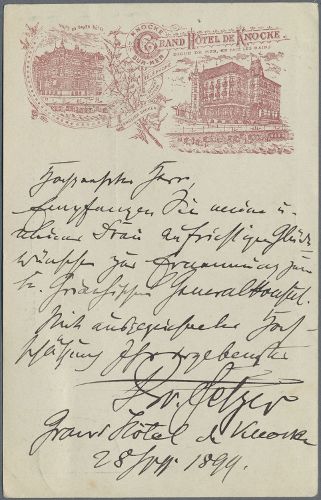 KNOCKE
SUR-MER
GRAND HÔTEL DE KNOCKE.
DIGUE DE MER, EN FACE LES BAINS
Hochgeehrter Herr
Empfangen Sie meine u.
meiner Frau aufrichtigen Glück
wünsche zur Ernennung zum
k. Griechischen General Konsul.
Mit ausgezeichneter Hoch
schätzung Ihr ergebenster
Dr. Setzer
Grand Hôtel de Knocke
28 1899.